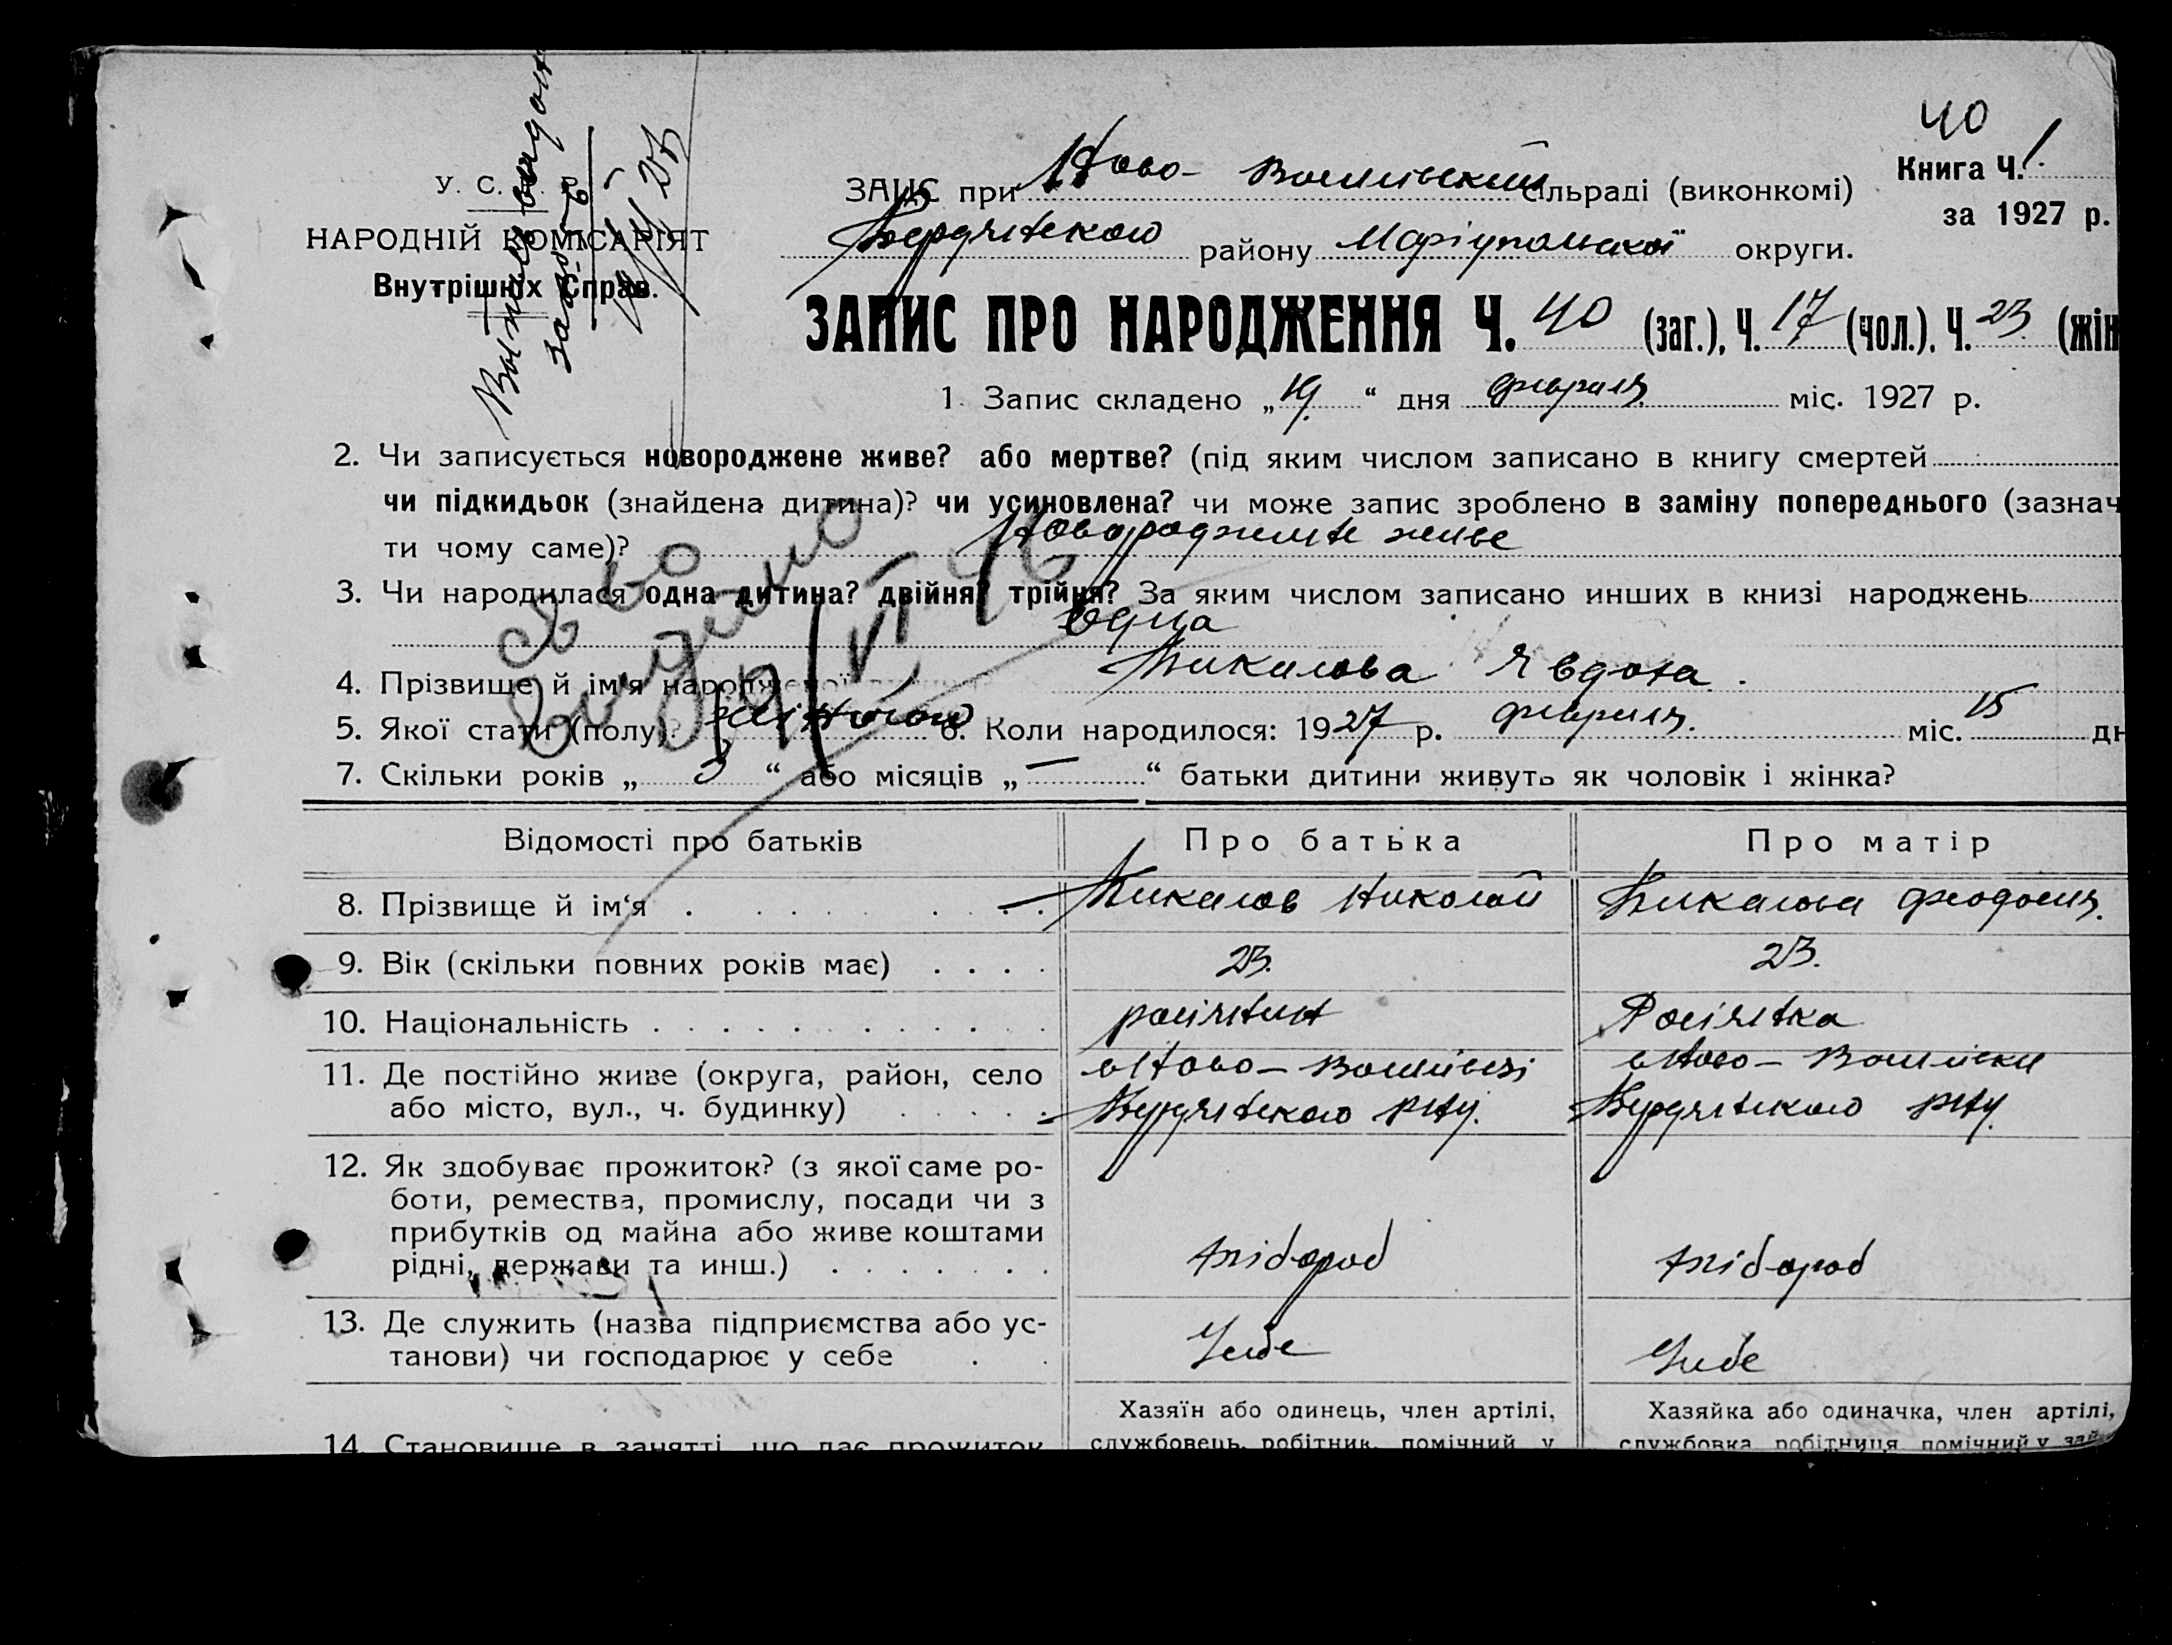 40
У. С. Р. Р.
НАРОДНІЙ КОМІСАРІЯТ
Внутрішніх Справ.
ЗАЦС при Ново-Василівський сільраді (виконкомі)
Бердянського району Маріупольської округи.
Книга Ч. 1.
за 1927 р.
ЗАПИС ПРО НАРОДЖЕННЯ Ч. 40 (заг.), Ч. 17 (чол.), Ч. 23 (жін
1. Запис складено „19“ дня февраля міс. 1927 р.
2. Чи записується новороджене живе? або мертве? (під яким числом записано в книгу смертей
чи підкидьок (знайдена дитина)? чи усиновлена? чи може запис зроблено в заміну попереднього (зазнач
ти чому саме)? Новороджене живе
3. Чи народилася одна дитина? двійня? трійня? За яким числом записано инших в книзі народжень
одна
4. Прізвище й ім'я народженої Явдоха.
5. Якої стати (полу)? жіночою 6. Коли народилося: 1927 р. февраля. міс. 15 дн
7. Скільки років „3“ або місяців „—“ батьки дитини живуть як чоловік і жінка?
Відомості про батьків
Про батька
Про матір
8. Прізвище й ім‘я . Николай Феодосия.
9. Вік (скільки повних років має) . . . . 23. 23.
10. Національність . . . . росіянин Росіянка
11. Де постійно живе (округа, район, село
або місто, вул., ч. будинку) . . . .
Ново-Василівсці
Бердянського р-ну.
Ново-Василівки
Бердянського р-ну.
12. Як здобуває прожиток? (з якої саме ро-
боти, ремества, промислу, посади чи з
прибутків од майна або живе коштами
рідні, держави та инш.) . . . . хлібороб хлібороб
13. Де служить (назва підприємства або ус-
танови) чи господарює у себе . . У себе У себе
Хазяїн або одинець, член артілі,
службовець, робітник, помічний у
Хазяйка або одиначка, член артілі,
службовка робітниця помічний у зай
14. Становище в занятті, що дає прожиток